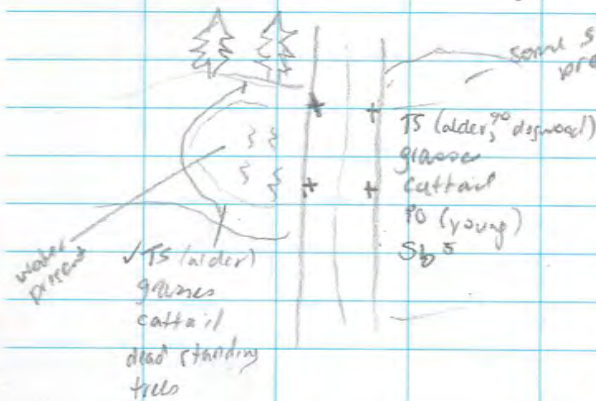 some
TS (alder, dogwood)
grasses
cattail
PO (young)
Sb
water
present
✓TS (alder)
grasses
cattail
dead standing
trees